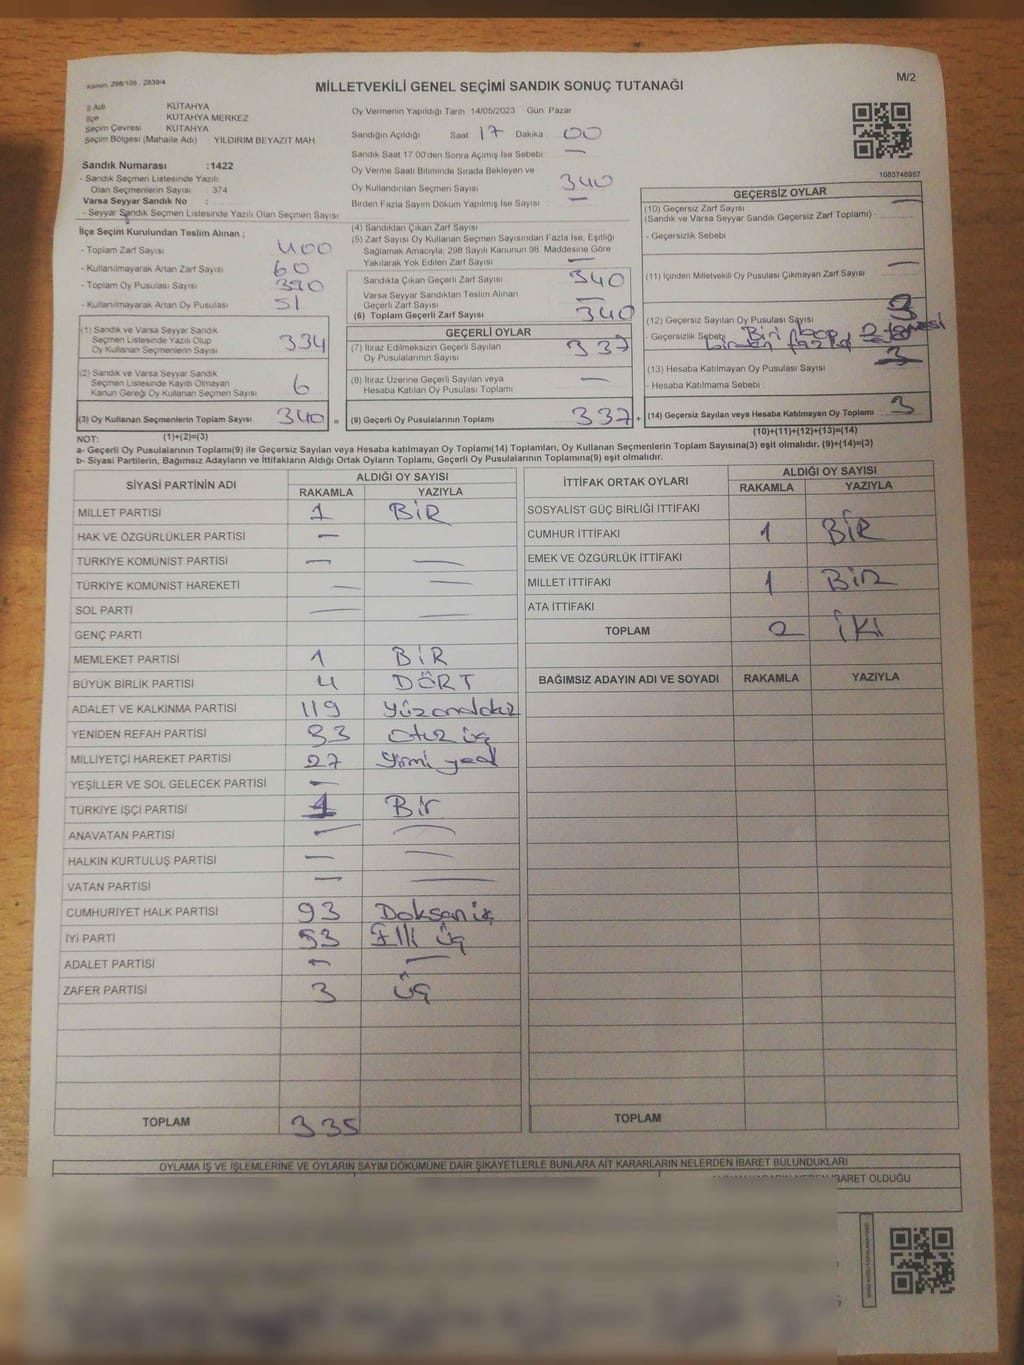 Kanun: 298/105 , 2839/4
M/2
MİLLETVEKİLİ GENEL SEÇİMİ SANDIK SONUÇ TUTANAĞI
İl Adı KÜTAHYA
İlçe KÜTAHYA MERKEZ
Seçim Çevresi KÜTAHYA
Seçim Bölgesi (Mahalle Adı) : YILDIRIM BEYAZIT MAH.
Sandık Numarası :1422
- Sandık Seçmen Listesinde Yazılı
Olan Seçmenlerin Sayısı : 374
Varsa Seyyar Sandık No :
- Seyyar Sandık Seçmen Listesinde Yazılı Olan Seçmen Sayısı
Oy Vermenin Yapıldığı Tarih 14/05/2023 Gün: Pazar
Sandığın Açıldığı Saat 17 Dakika : 00
Sandık Saat 17:00'den Sonra Açılmış İse Sebebi : —
Oy Verme Saati Bitiminde Sırada Bekleyen ve
Oy Kullandırılan Seçmen Sayısı 340
Birden Fazla Sayım Döküm Yapılmış İse Sayısı —
1083748957
İlçe Seçim Kurulundan Teslim Alınan ;
- Toplam Zarf Sayısı 400
- Kullanılmayarak Artan Zarf Sayısı 60
- Toplam Oy Pusulası Sayısı 390
- Kullanılmayarak Artan Oy Pusulası 51
(1) Sandık ve Varsa Seyyar Sandık
Seçmen Listesinde Yazılı Olup
Oy Kullanan Seçmenlerin Sayısı 334
(2) Sandık ve Varsa Seyyar Sandık
Seçmen Listesinde Kayıtlı Olmayan
Kanun Gereği Oy Kullanan Seçmen Sayısı 6
(3) Oy Kullanan Seçmenlerin Toplam Sayısı 340 =
(4) Sandıktan Çıkan Zarf Sayısı
(5) Zarf Sayısı Oy Kullanan Seçmen Sayısından Fazla İse, Eşitliği
Sağlamak Amacıyla; 298 Sayılı Kanunun 98. Maddesine Göre
Yakılarak Yok Edilen Zarf Sayısı —
Sandıkta Çıkan Geçerli Zarf Sayısı 340
Varsa Seyyar Sandıktan Teslim Alınan
Geçerli Zarf Sayısı —
(6) Toplam Geçerli Zarf Sayısı 340
GEÇERLİ OYLAR
(7) İtiraz Edilmeksizin Geçerli Sayılan
Oy Pusulalarının Sayısı 337
(8) İtiraz Üzerine Geçerli Sayılan veya
Hesaba Katılan Oy Pusulası Toplamı —
(9) Geçerli Oy Pusulalarının Toplamı 337 +
GEÇERSİZ OYLAR
(10) Geçersiz Zarf Sayısı —
(Sandık ve Varsa Seyyar Sandık Geçersiz Zarf Toplamı) :
- Geçersizlik Sebebi
(11) İçinden Milletvekili Oy Pusulası Çıkmayan Zarf Sayısı —
(12) Geçersiz Sayılan Oy Pusulası Sayısı 3
- Geçersizlik Sebebi Biri boş 2 tanesi
birden fazla
(13) Hesaba Katılmayan Oy Pusulası Sayısı 3
- Hesaba Katılmama Sebebi :
(14) Geçersiz Sayılan veya Hesaba Katılmayan Oy Toplamı : 3
NOT: (1)+(2)=(3)
(10)+(11)+(12)+(13)=(14)
a- Geçerli Oy Pusulalarının Toplamı(9) ile Geçersiz Sayılan veya Hesaba katılmayan Oy Toplamı(14) Toplamları, Oy Kullanan Seçmenlerin Toplam Sayısına(3) eşit olmalıdır. (9)+(14)=(3)
b- Siyasi Partilerin, Bağımsız Adayların ve İttifakların Aldığı Ortak Oyların Toplamı, Geçerli Oy Pusulalarının Toplamına(9) eşit olmalıdır.
SİYASİ PARTİNİN ADI ALDIĞI OY SAYISI
RAKAMLA YAZIYLA
MİLLET PARTİSİ 1 BİR
HAK VE ÖZGÜRLÜKLER PARTİSİ —
TÜRKİYE KOMÜNİST PARTİSİ — —
TÜRKİYE KOMÜNİST HAREKETİ — —
SOL PARTİ — —
GENÇ PARTİ
MEMLEKET PARTİSİ 1 BİR
BÜYÜK BİRLİK PARTİSİ 4 DÖRT
ADALET VE KALKINMA PARTİSİ 119 Yüzondokuz
YENİDEN REFAH PARTİSİ 33 Otuz üç
MİLLİYETÇİ HAREKET PARTİSİ 27 Yirmi yedi
YEŞİLLER VE SOL GELECEK PARTİSİ —
TÜRKİYE İŞÇİ PARTİSİ 1 Bir
ANAVATAN PARTİSİ — —
HALKIN KURTULUŞ PARTİSİ — —
VATAN PARTİSİ — —
CUMHURİYET HALK PARTİSİ 93 Doksan üç
İYİ PARTİ 53 Elli üç
ADALET PARTİSİ — —
ZAFER PARTİSİ 3 üç
TOPLAM 335
İTTİFAK ORTAK OYLARI ALDIĞI OY SAYISI
RAKAMLA YAZIYLA
SOSYALİST GÜÇ BİRLİĞİ İTTİFAKI
CUMHUR İTTİFAKI 1 BİR
EMEK VE ÖZGÜRLÜK İTTİFAKI
MİLLET İTTİFAKI 1 BİR
ATA İTTİFAKI
TOPLAM 2 İKİ
BAĞIMSIZ ADAYIN ADI VE SOYADI RAKAMLA YAZIYLA
TOPLAM
OYLAMA İŞ VE İŞLEMLERİNE VE OYLARIN SAYIM DÖKÜMÜNE DAİR ŞİKAYETLERLE BUNLARA AİT KARARLARIN NELERDEN İBARET BULUNDUKLARI
İBARET OLDUĞU